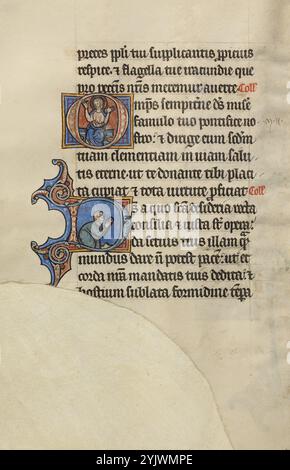 preces ppłi tui supplicantis propicius
respice. & flagella tue iracundie que
pro peccīs nr̄is meremur auerte. Coll
mp̄s sempit̄ne d̄s mise
famulo tuo pontifice no
stro. & dirige eum sēdm
tuam clementiam in uiam salu
tis eterne. ut te donante tibi placi
ta cupiat. & tota uirtute p̄ficiat. Coll
s a quo sc̄a desideria recta
consilia & iusta st̄ opera.
da seruis tuis illam q̄
mundus dare n̄ potest pacē. ut et
corda nr̄a mandatis tuis dedita. &
hostium sublata formidine tēpa
alamy
Image ID: 2YJWMPE
www.alamy.com